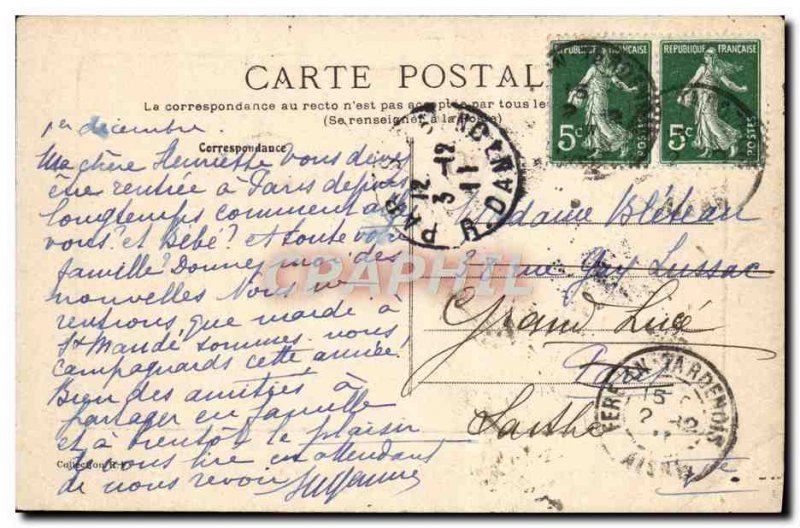 CARTE POSTAL
La correspondance au recto n'est pas acceptée par tous les
(Se renseigner à la Poste)
RÉPUBLIQUE FRANÇAISE
5c
POSTES
RÉPUBLIQUE FRANÇAISE
5c
POSTES
1er décembre
Correspondance
Ma chère Henriette vous devez
être rentrée à Paris depuis
longtemps comment allez
vous? et Bébé? et toute votre
famille? Donnez moi des
nouvelles Nous ne
rentrons que mardi à
St Mandé sommes nous
campagnards cette année!
Bien des amitiés à
partager en famille
et à bientôt le plaisir
de vous lire en attendant
de nous revoir Suzanne
Collection R.F.
PARIS
R. DANTON
12
3-12
11
Madame Bléteau
28 rue Gay Lussac
Grand Lucé
Paris
Sarthe
FERE-EN-TARDENOIS
15
2-12
11
AISNE
CPAPHIL